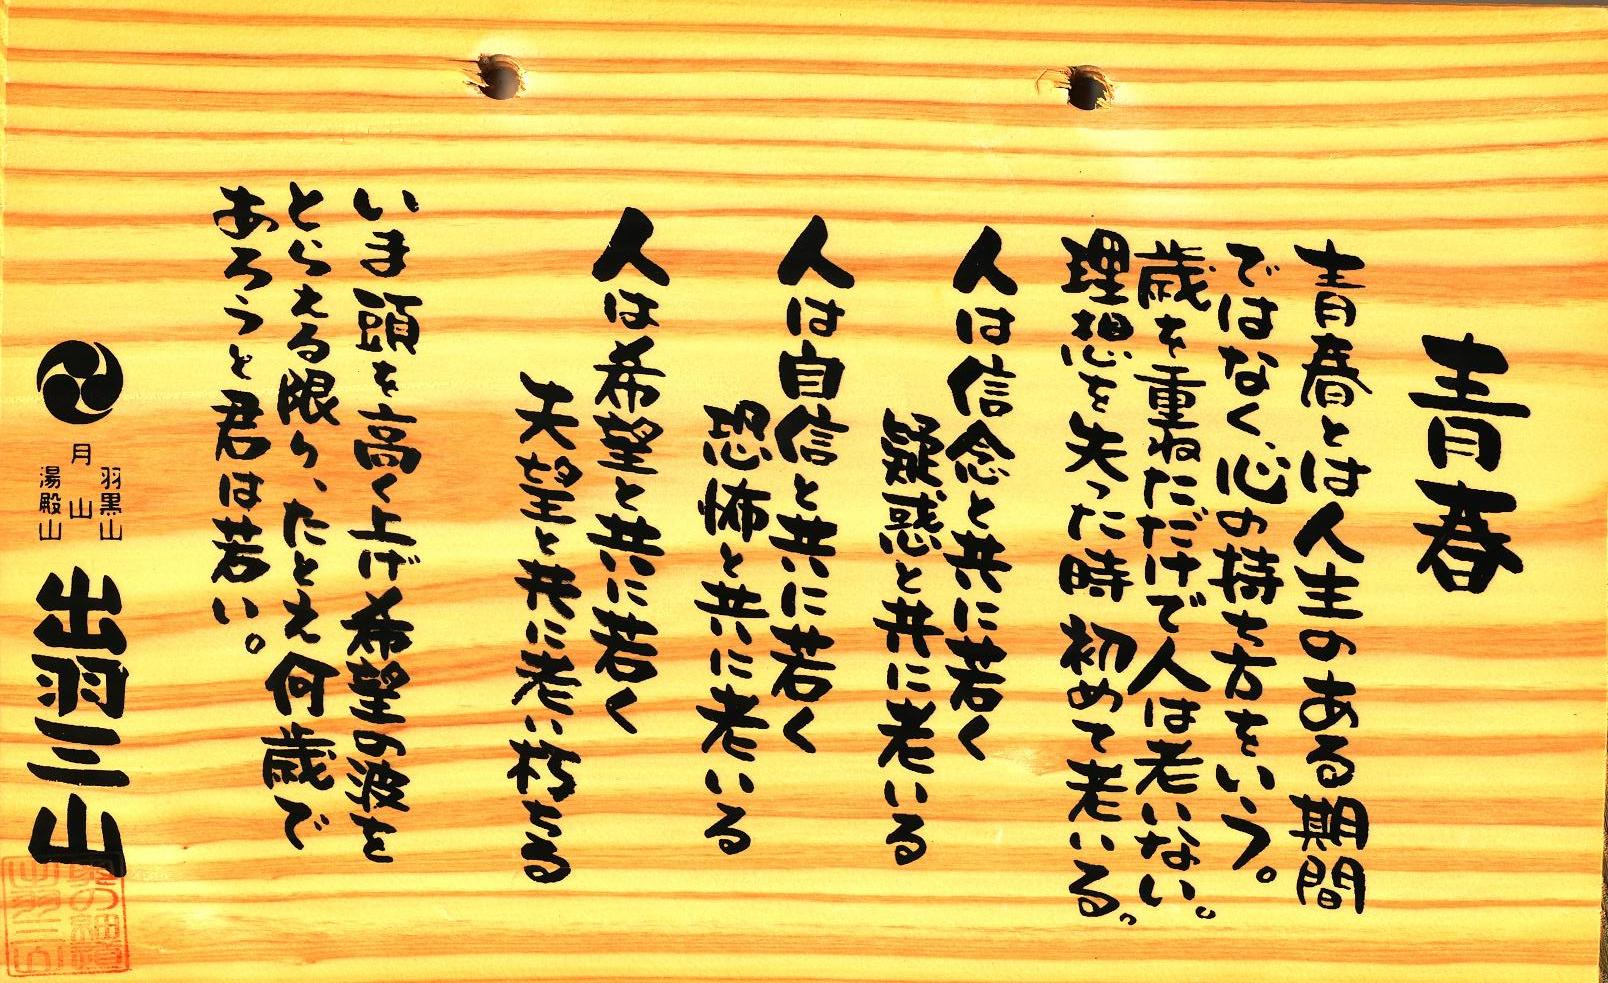 青春
青春とは人生のある期間
ではなく、心の持ち方をいう。
歳を重ねただけで人は老いない。
理想を失った時初めて老いる。
人は信念と共に若く
疑惑と共に老いる
人は自信と共に若く
恐怖と共に老いる
人は希望と共に若く
失望と共に老い朽ちる
いま頭を高く上げ希望の波を
とらえる限り、たとえ何歳で
あろうと君は若い。
羽黒山
月山
湯殿山
出羽三山